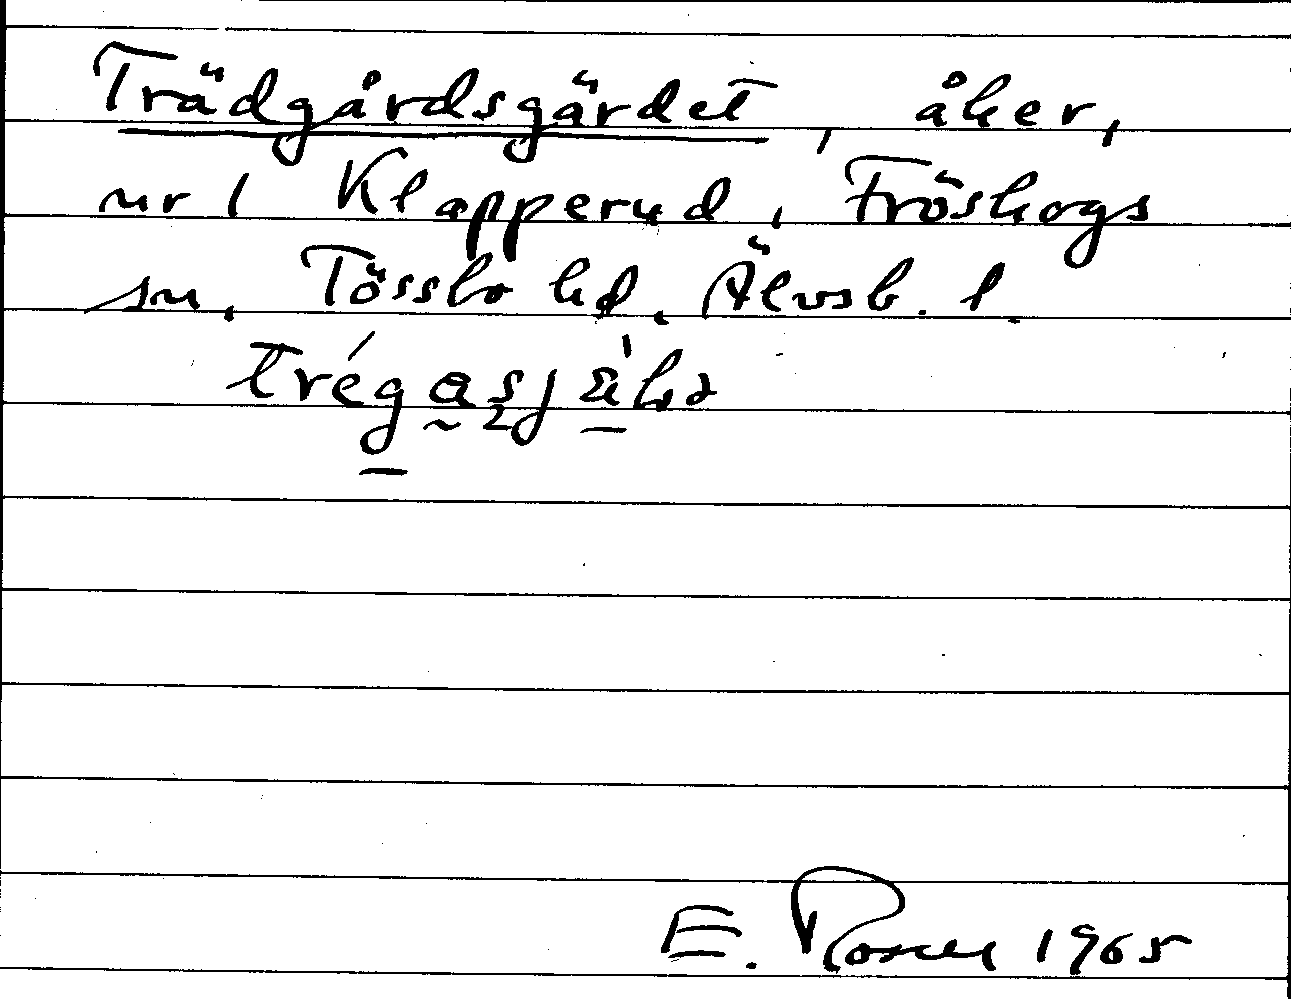 Trädgårdsgärdet, åker,
nr 1 Klapperud, Fröskogs
sn, Tössbo hd, Älvsb. l.
E. Rosell 1965